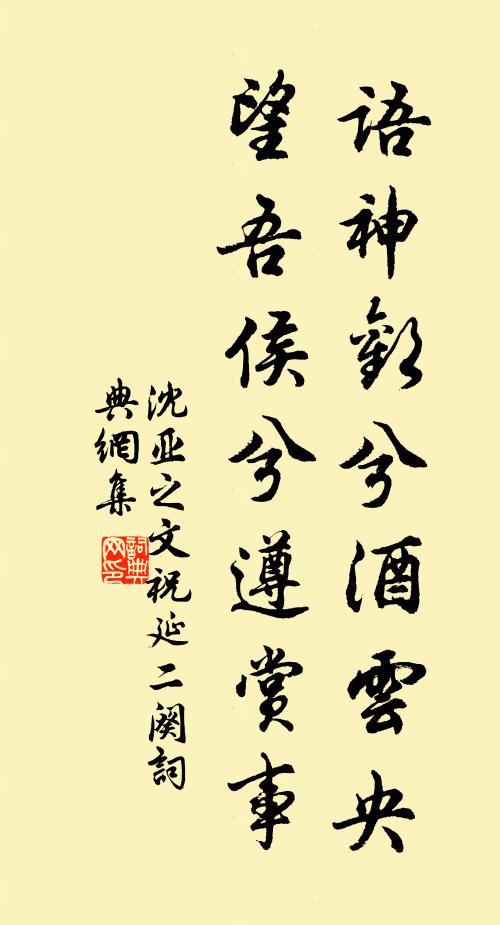 語神歡兮酒雲央
望吾侯兮遵賞事
沈亞之文祝延二闋詞
典網集
詞典
网印